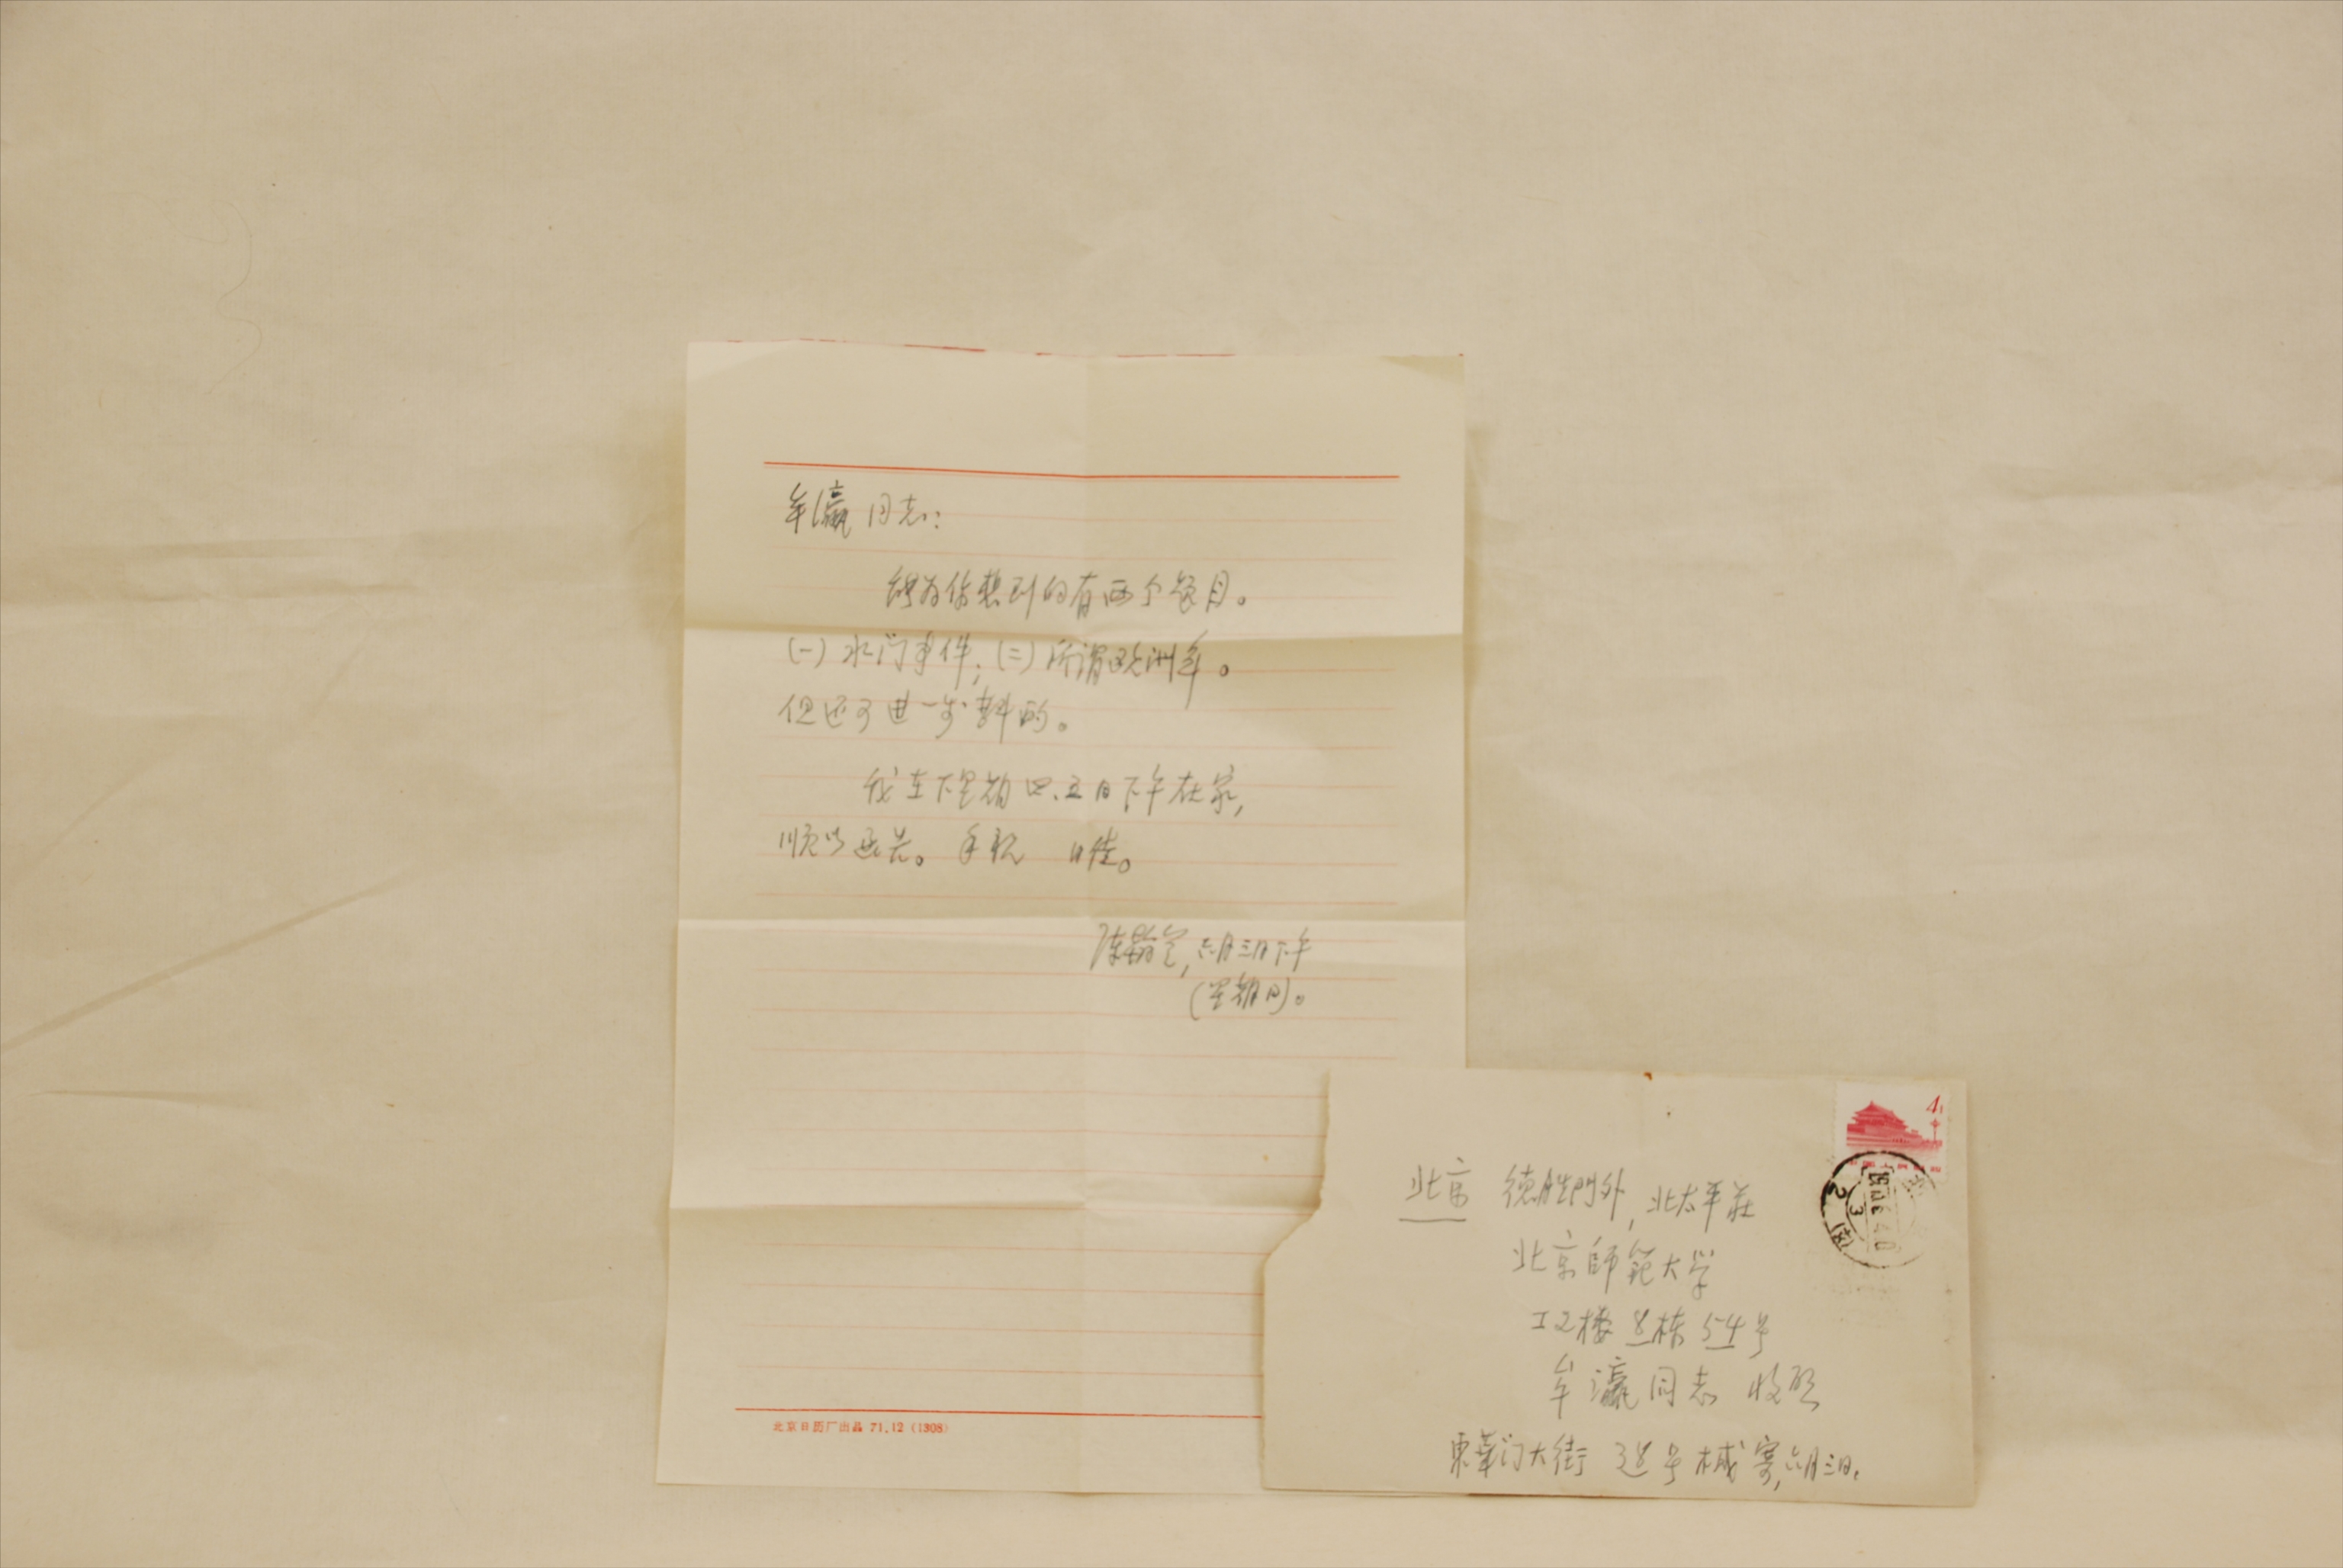 牟瀛同志:
能为你想到的有两个题目。
(一)水门事件;(二)所谓欧洲年。
但还可进一步斟酌。
我在下星期四、五日下午在家,
顺以函告。手祝 日佳。
陈翰笙,六月三日下午
(星期日)。
北京日历厂出品 71.12 (1308)
4
北京 德胜門外,北太平莊
北京師範大学
工2楼8栋54号
牟瀛同志 收啟
東華门大街 38号 椷寄,六月三日。